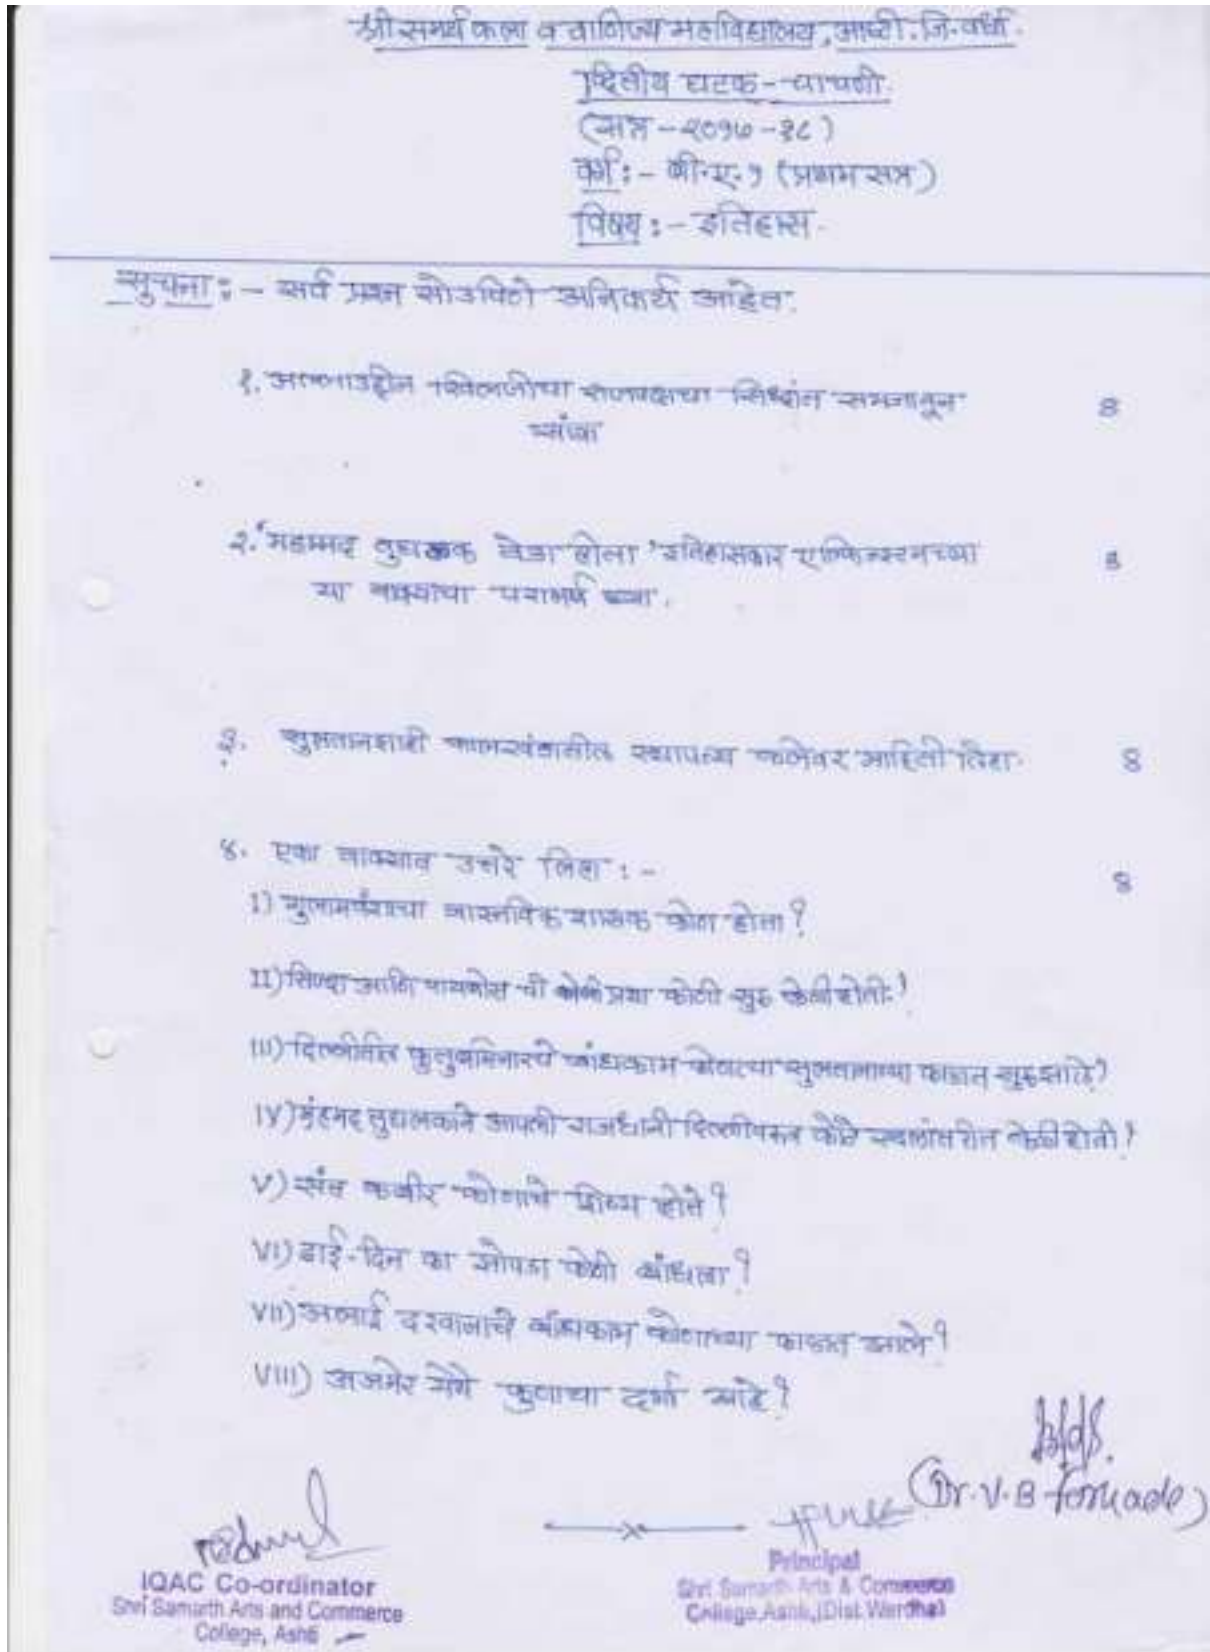 श्री समर्थ कला व वाणिज्य महाविद्यालय, आष्टी. जि. वर्धा.
द्वितीय घटक - चाचणी.
(सत्र - २०१७ - १८)
वर्ग :- बी.ए. १ (प्रथम सत्र)
विषय :- इतिहास.
सुचना :- सर्व प्रश्न सोडविणे अनिवार्य आहेत.
१. अल्लाउद्दीन खिलजीचा राजपदाचा सिध्दांत समजावून
सांगा
४
२. "महम्मद तुघलक वेडा होता" इतिहासकार एल्फिन्स्टनच्या
या वाक्याचा परामर्ष घ्या.
४
३. सुलतानशाही कालखंडातील स्थापत्य कलेवर माहिती लिहा.
४
४. एका वाक्यात उत्तरे लिहा :-
४
I) गुलामवंशाचा वास्तविक शासक कोण होता?
II) सिज्दा आणि पायबोस ची प्रथा कोणी सुरु केली होती?
III) दिल्लीतील कुतुबमिनारचे बांधकाम कोणत्या सुलतानाच्या काळात सुरु झाले?
IV) मुहमद तुघलकाने आपली राजधानी दिल्लीवरुन कोठे स्थलांतरीत केली होती?
V) संत कबीर कोणाचे शिष्य होते?
VI) ढाई-दिन का झोपडा कोणी बांधला?
VII) अलाई दरवाजाचे बांधकाम कोणाच्या काळात झाले?
VIII) अजमेर येथे कुणाचा दर्गा आहे?
(Dr. V. B.
IQAC Co-ordinator
Shri Samarth Arts and Commerce
College, Ashti
Principal
Shri Samarth Arts & Commerce
College, Ashti, (Dist. Wardha)